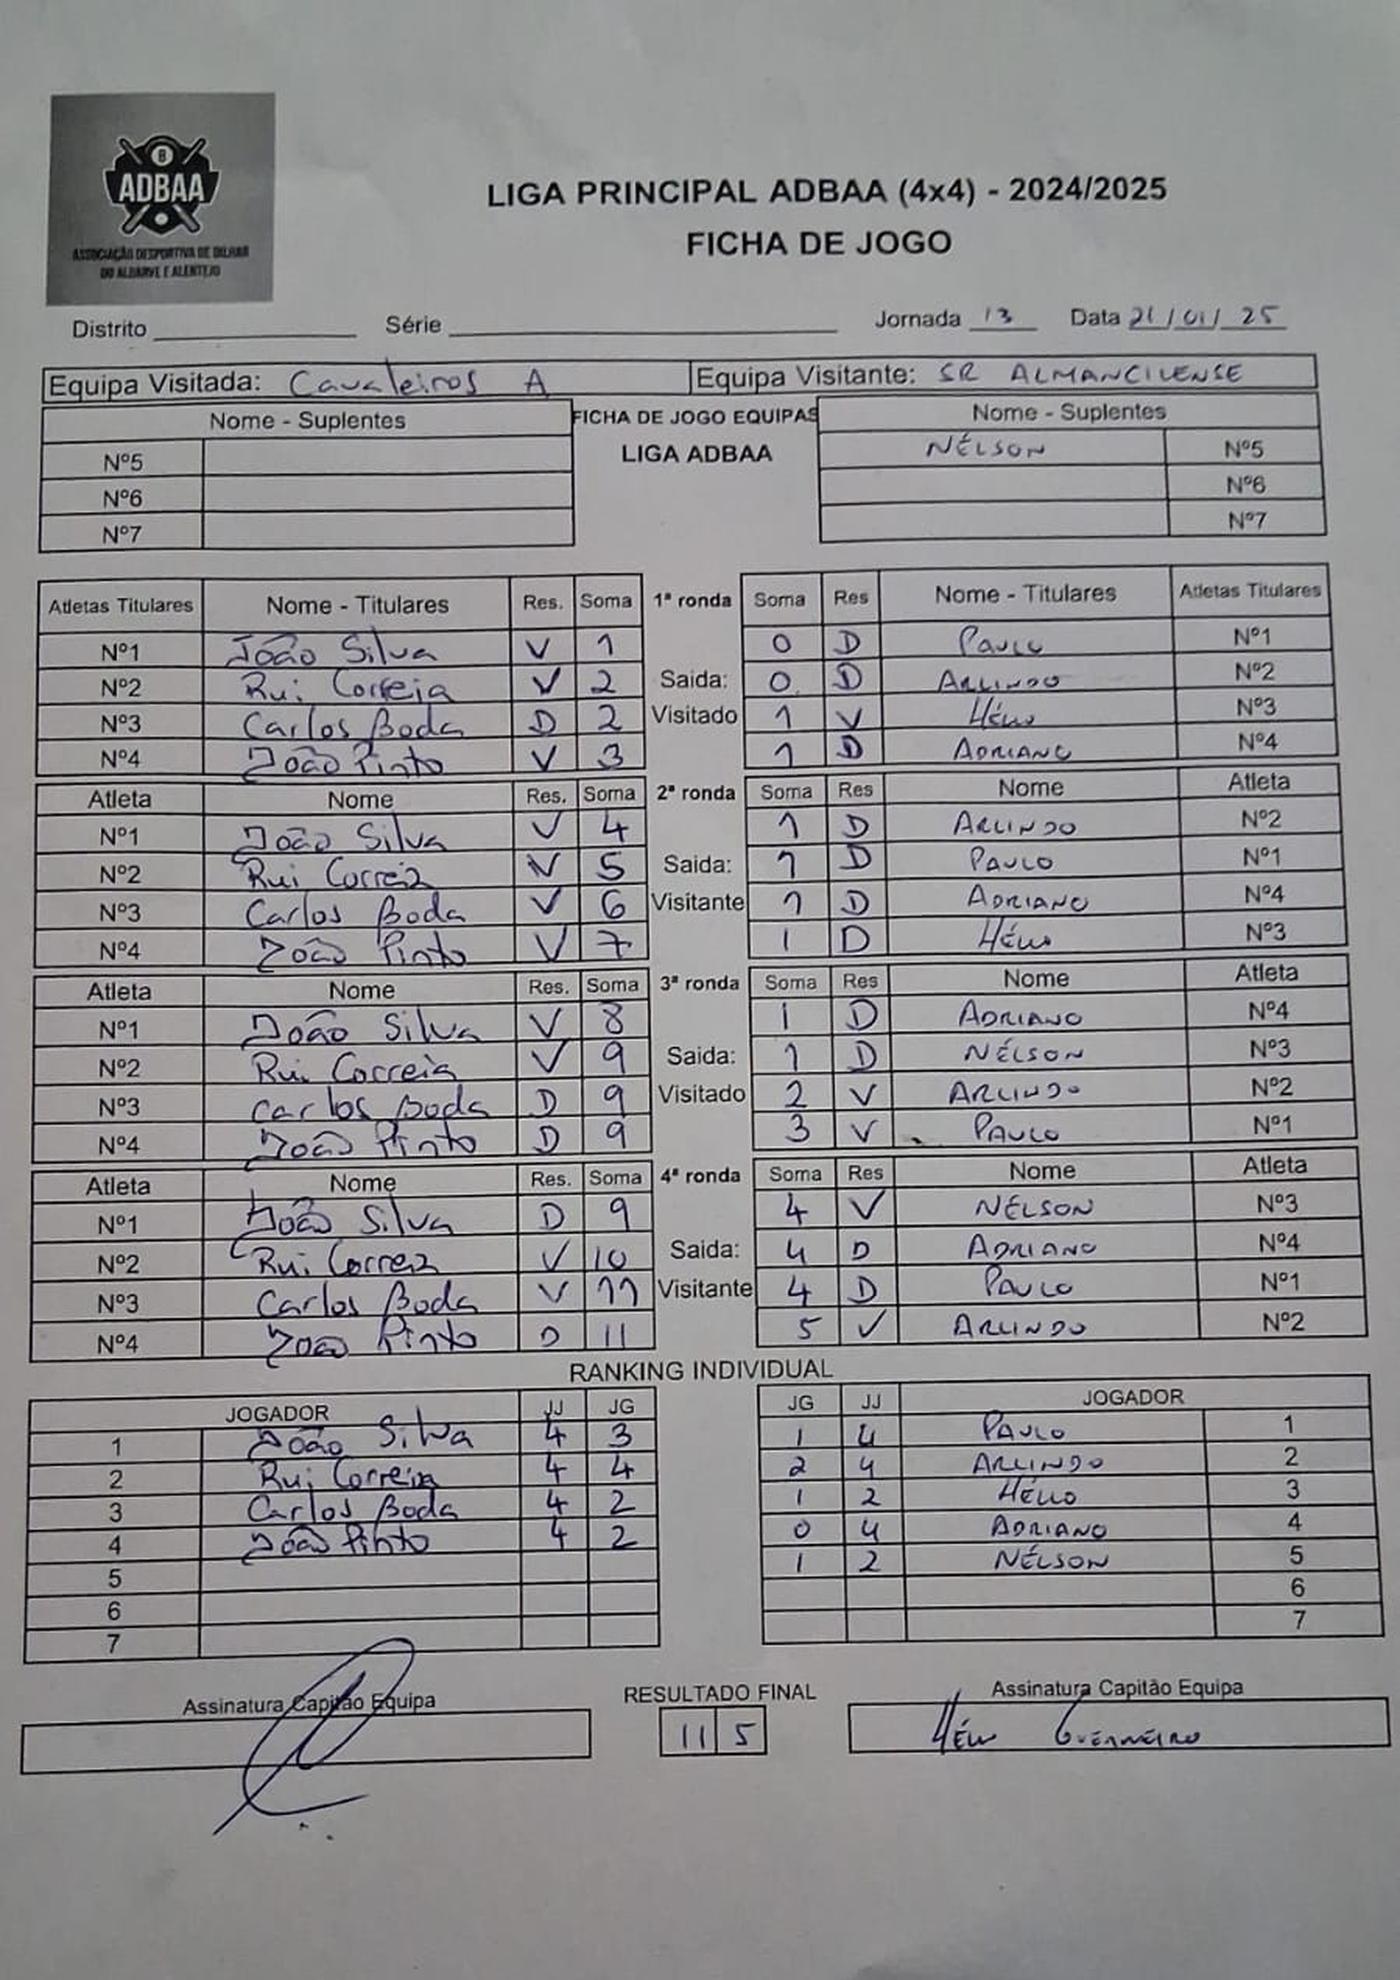 8
ADBAA
ASSOCIAÇÃO DESPORTIVA DE BILHAR
DO ALGARVE E ALENTEJO
LIGA PRINCIPAL ADBAA (4x4) - 2024/2025
FICHA DE JOGO
Distrito Série Jornada 13 Data 21/01/25
Equipa Visitada: Cavaleiros A Equipa Visitante: SR ALMANCILENSE
Nome - Suplentes FICHA DE JOGO EQUIPAS Nome - Suplentes
Nº5 LIGA ADBAA NÉLSON Nº5
Nº6 Nº6
Nº7 Nº7
Atletas Titulares Nome - Titulares Res. Soma 1ª ronda Soma Res Nome - Titulares Atletas Titulares
Nº1 João Silva V 1 0 D PAULO Nº1
Nº2 Rui Correia V 2 Saida: 0 D ARLINDO Nº2
Nº3 Carlos Boda D 2 Visitado 1 V Hélio Nº3
Nº4 João Pinto V 3 1 D ADRIANO Nº4
Atleta Nome Res. Soma 2ª ronda Soma Res Nome Atleta
Nº1 João Silva V 4 1 D ARLINDO Nº2
Nº2 Rui Correia V 5 Saida: 1 D PAULO Nº1
Nº3 Carlos Boda V 6 Visitante 1 D ADRIANO Nº4
Nº4 João Pinto V 7 1 D Hélio Nº3
Atleta Nome Res. Soma 3ª ronda Soma Res Nome Atleta
Nº1 João Silva V 8 1 D ADRIANO Nº4
Nº2 Rui Correia V 9 Saida: 1 D NÉLSON Nº3
Nº3 Carlos Boda D 9 Visitado 2 V ARLINDO Nº2
Nº4 João Pinto D 9 3 V PAULO Nº1
Atleta Nome Res. Soma 4ª ronda Soma Res Nome Atleta
Nº1 João Silva D 9 4 V NÉLSON Nº3
Nº2 Rui Correia V 10 Saida: 4 D ADRIANO Nº4
Nº3 Carlos Boda V 11 Visitante 4 D PAULO Nº1
Nº4 João Pinto D 11 5 V ARLINDO Nº2
RANKING INDIVIDUAL
JOGADOR JJ JG JG JJ JOGADOR
1 João Silva 4 3 1 4 PAULO 1
2 Rui Correia 4 4 2 4 ARLINDO 2
3 Carlos Boda 4 2 1 2 HÉLIO 3
4 João Pinto 4 2 0 4 ADRIANO 4
5 1 2 NÉLSON 5
6 6
7 7
Assinatura Capitão Equipa RESULTADO FINAL Assinatura Capitão Equipa
11 5 Hélio GUERREIRO